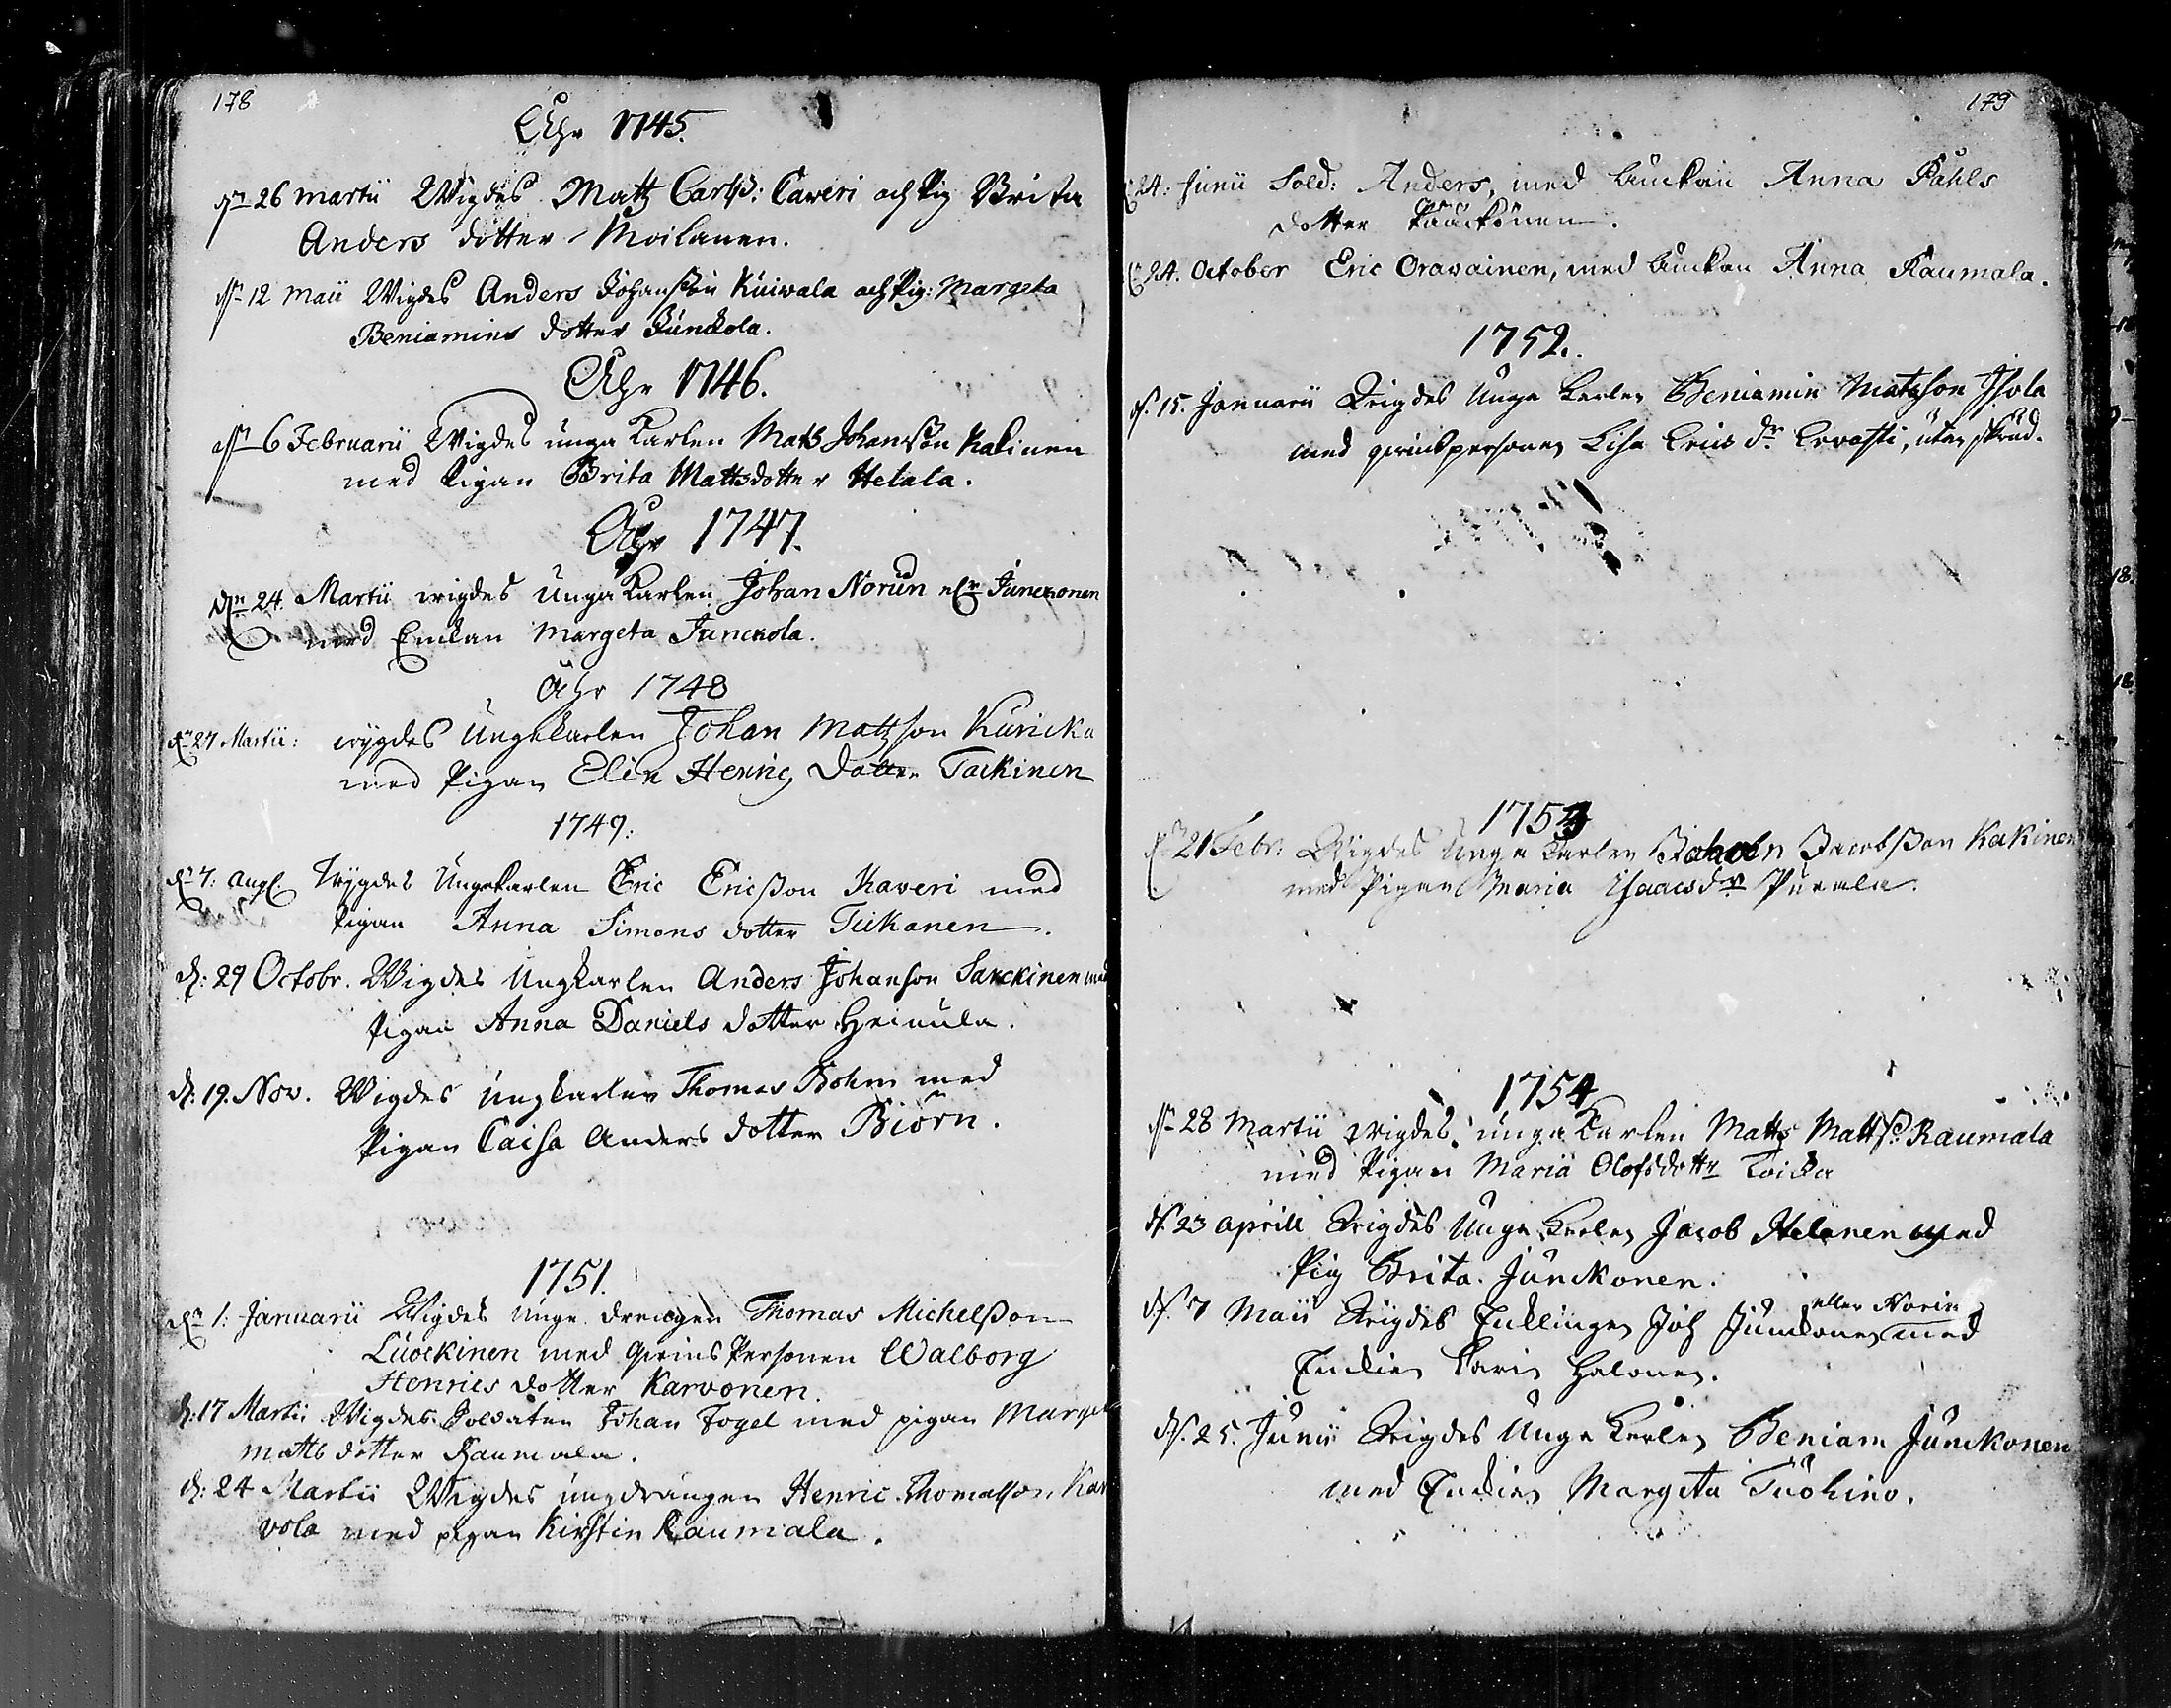 178
Åhr 1745.
dn 26 Martii Wigdes Matz Carlss: Caveri och Pig Brita
Anders dotter Moilanen.
dn 12 Maii Wigdes Anders Johansson Kuivala och Pig: Margeta
Beniamins dotter Junckola.
Åhr 1746.
dn 6 Februarii Wigdes unga Karlen Mats Johansson Kakinen
med Pigan Brita Mattsdotter Hetala.
Åhr 1747.
dn 24. Martii wigdes Unga Karlen Johan Norun elr Junckonen
med Enckan Margeta Junckola.
Åhr 1748
dn 27 Martii: wygdes Ungekarlen Johan Matzson Kuricka
med Pigan Elin Henric Dotter Tackinen
1749:
dn 7: Wygdes Ungekarlen Eric Ericsson Kaveri med
Pigan Anna Simons dotter Tiikanen.
d: 29 Octobr. Wigdes Ungkarlen Anders Johanson Sarckinen med
Pigan Anna Daniels dotter Heinula.
d: 19. Nov. Wigdes Ungkarlen Thomas Bohm med
Pigan Caisa Anders dotter Biörn.
1751.
dn 1: Januarii Wigdes Unge drengen Thomas Michelsson
Luockinen med Qvins Personen Walborg
Henrics dotter Karvonen.
d: 17 Martii Wigdes Soldaten Johan Fogel med pigan Marget
Matts dotter Raumala.
d: 24 Martii Wigdes ungdrängen Henric Thomasson Kar
vola med pigan Kirstin Raumala.
179
24: Junii Sold: Anders, med Enckan Anna Påhls
dotter
24. October Eric Oravainen, med Enckan Anna Raumala.
1752.
d. 15. Januarii Wigdes Unga Karlen Beniamin Matzson Isola
med qvinspersonen Lisa Erics dr Ervasti, utan skrud.
1753
dn 21 Febr: Wigdes Unga Karlen Jacobsson Kakinen
med Pigan Maria Isaacsdr Purala.
1754
dn 28 Martii wigdes unga Karlen Matts Mattss. Raumala
med Pigan Maria Olofsdottr Loicka
dn 23 Aprill Wigdes Unga Karlen Jacob Helanen med
Pig Brita Junckonen.
dn 7 Maii Wigdes Encklingen Joh Junckonen eller Norin med
Enckan Karin Halonen.
dn. 25. Junii Wigdes Unga Karlen Beniam Junckonen
med Enckan Margeta Tuohino.